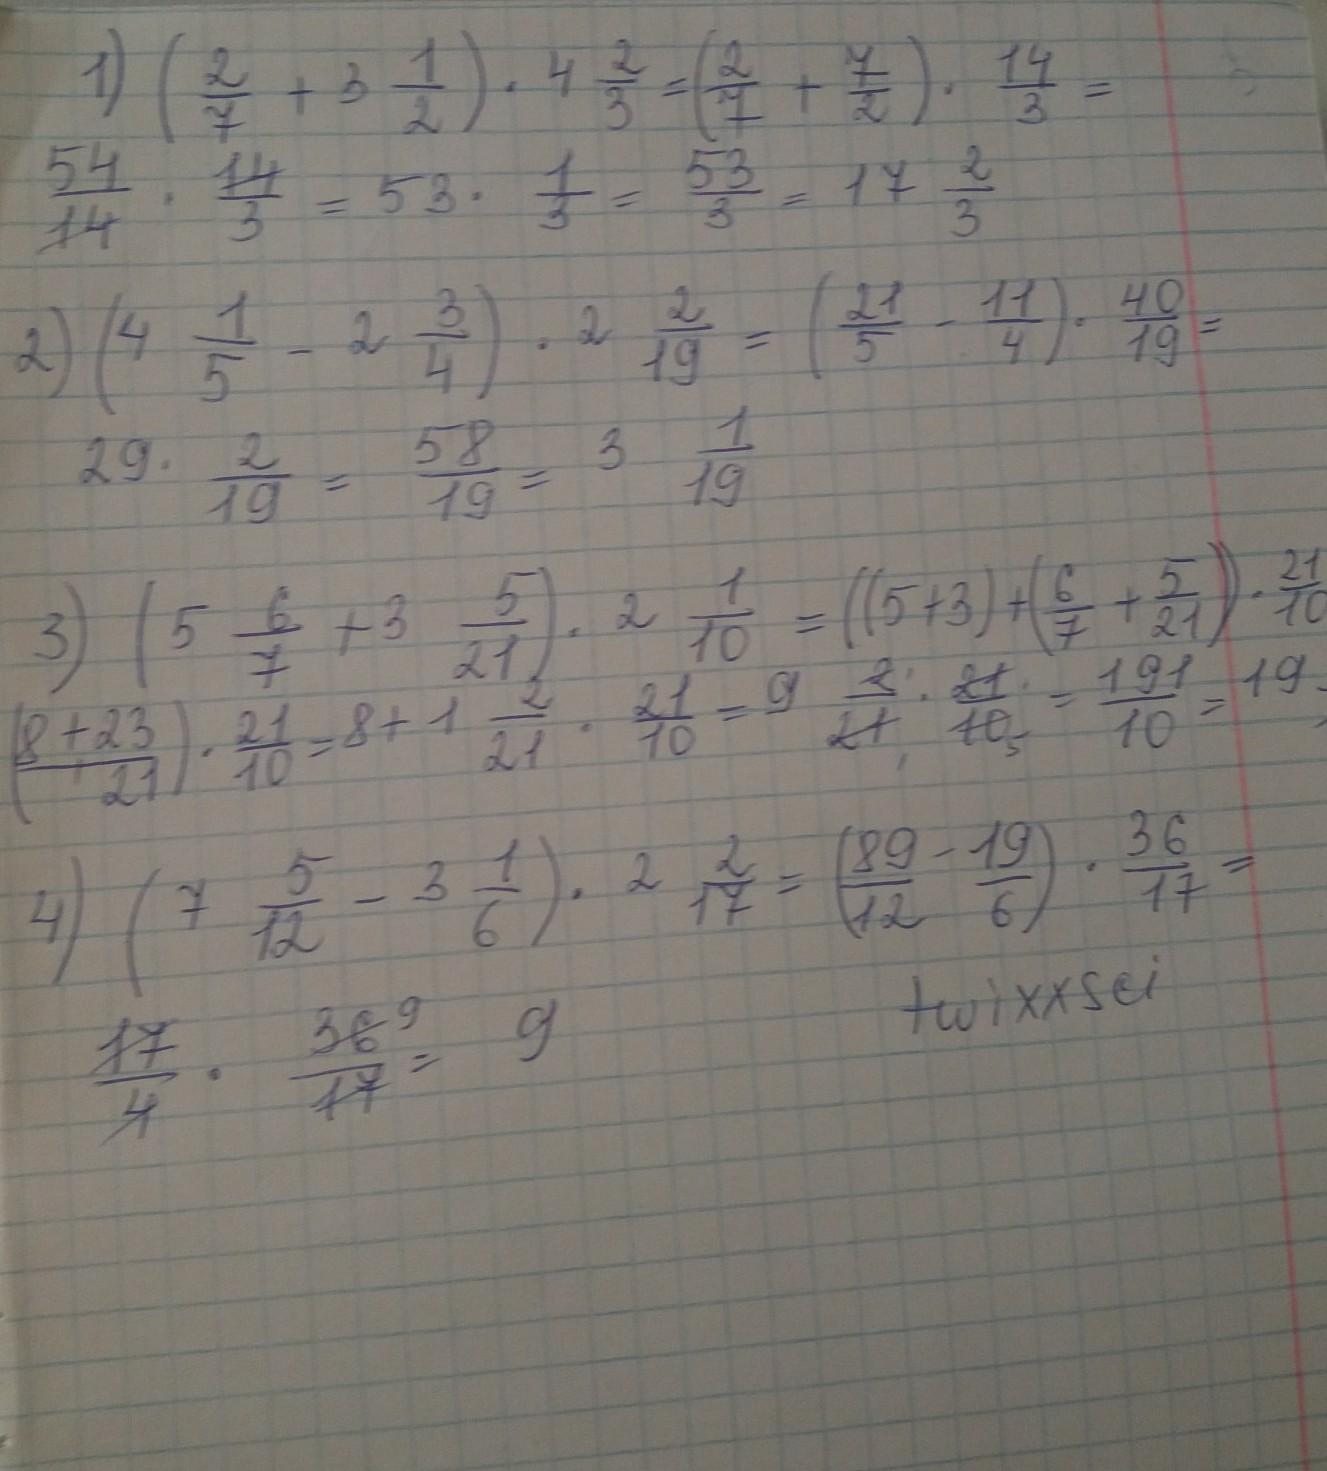 1) (2/7 + 3 1/2) · 4 2/3 = (2/7 + 7/2) · 14/3 =
54/14 · 14/3 = 53 · 1/3 = 53/3 = 17 2/3
2) (4 1/5 - 2 3/4) · 2 2/19 = (21/5 - 11/4) · 40/19 =
29 · 2/19 = 58/19 = 3 1/19
3) (5 6/7 + 3 5/21) · 2 1/10 = ((5+3) + (6/7 + 5/21)) · 21/10
(8 + 23/21) · 21/10 = 8 + 1 2/21 · 21/10 = 9 2/21 · 21/10 = 191/10 = 19,
4) (7 5/12 - 3 1/6) · 2 2/17 = (89/12 - 19/6) · 36/17 =
17/4 · 36/17 = 9
twixxsei